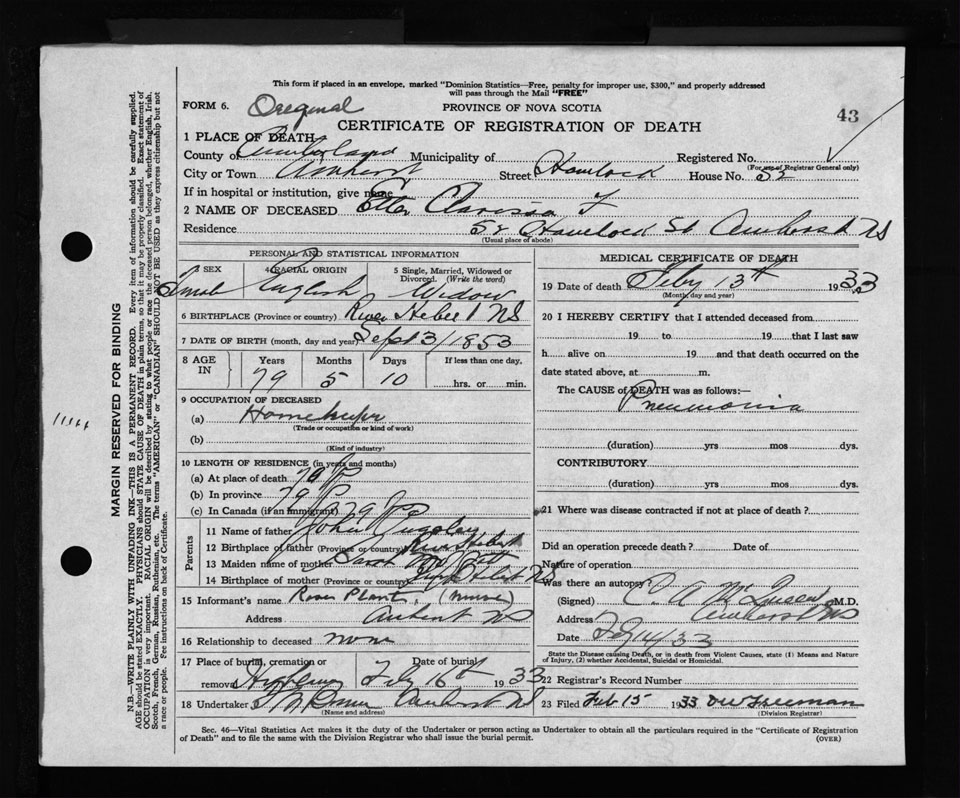 This form if placed in an envelope, marked "Dominion Statistics—Free, penalty for improper use, $300," and properly addressed
will pass through the Mail "FREE"
FORM 6. Original PROVINCE OF NOVA SCOTIA 43
CERTIFICATE OF REGISTRATION OF DEATH
1 PLACE OF DEATH
County of Cumberland Municipality of Registered No.
(For use of Registrar General only)
City or Town Amherst Street Havelock House No. 52
If in hospital or institution, give name
2 NAME OF DECEASED Etter Clarissa F
Residence 52 Havelock St Amherst NS
(Usual place of abode)
PERSONAL AND STATISTICAL INFORMATION
3 SEX 4 RACIAL ORIGIN 5 Single, Married, Widowed or
Divorced. (Write the word)
Female English Widow
6 BIRTHPLACE (Province or country) River Hebert NS
7 DATE OF BIRTH (month, day and year) Sept 3/1853
8 AGE IN Years Months Days If less than one day,
79 5 10 hrs. or min.
9 OCCUPATION OF DECEASED
(a) Homekeeper
(Trade or occupation or kind of work)
(b)
(Kind of industry)
10 LENGTH OF RESIDENCE (in years and months)
(a) At place of death
(b) In province 79
(c) In Canada (if an immigrant) 79
Parents
11 Name of father John Pugsley
12 Birthplace of father (Province or country) River Hebert
13 Maiden name of mother Sarah
14 Birthplace of mother (Province or country) River Hebert NS
15 Informant's name (nurse)
Address Amherst NS
16 Relationship to deceased none
17 Place of burial, cremation or Date of burial
removal Feby 16th 1933
18 Undertaker Amherst NS
(Name and address)
MEDICAL CERTIFICATE OF DEATH
19 Date of death Feby 13th 1933
(Month, day and year)
20 I HEREBY CERTIFY that I attended deceased from
19 to 19 that I last saw
h alive on 19 and that death occurred on the
date stated above, at m.
The CAUSE of DEATH was as follows:—
Pneumonia
(duration) yrs mos dys.
CONTRIBUTORY
(duration) yrs mos dys.
21 Where was disease contracted if not at place of death?
Did an operation precede death? Date of
Nature of operation
Was there an autopsy?
(Signed) C. A. McQueen M.D.
Address Amherst NS
Date Feb 14/33
State the Disease causing Death, or in death from Violent Causes, state (1) Means and
Nature of Injury, (2) whether Accidental, Suicidal or Homicidal.
22 Registrar's Record Number
23 Filed Feb 15 1933 Freeman
(Division Registrar)
Sec. 46—Vital Statistics Act makes it the duty of the Undertaker or person acting as Undertaker to obtain all the particulars required in the "Certificate of Registration
of Death" and to file the same with the Division Registrar who shall issue the burial permit. (OVER)
MARGIN RESERVED FOR BINDING
N.B.—WRITE PLAINLY WITH UNFADING INK—THIS IS A PERMANENT RECORD. Every item of information should be carefully supplied.
AGE should be stated EXACTLY. PHYSICIANS should STATE CAUSE OF DEATH in plain terms, so that it may be properly classified. Exact statement of
OCCUPATION is very important. RACIAL ORIGIN will be described by stating to what people or race the deceased person belonged, whether English, Irish,
Scotch, French, German, Russian, Ruthenian, etc. The terms "AMERICAN" or "CANADIAN" SHOULD NOT BE USED as they express citizenship but not
a race or people. See instructions on back of Certificate.